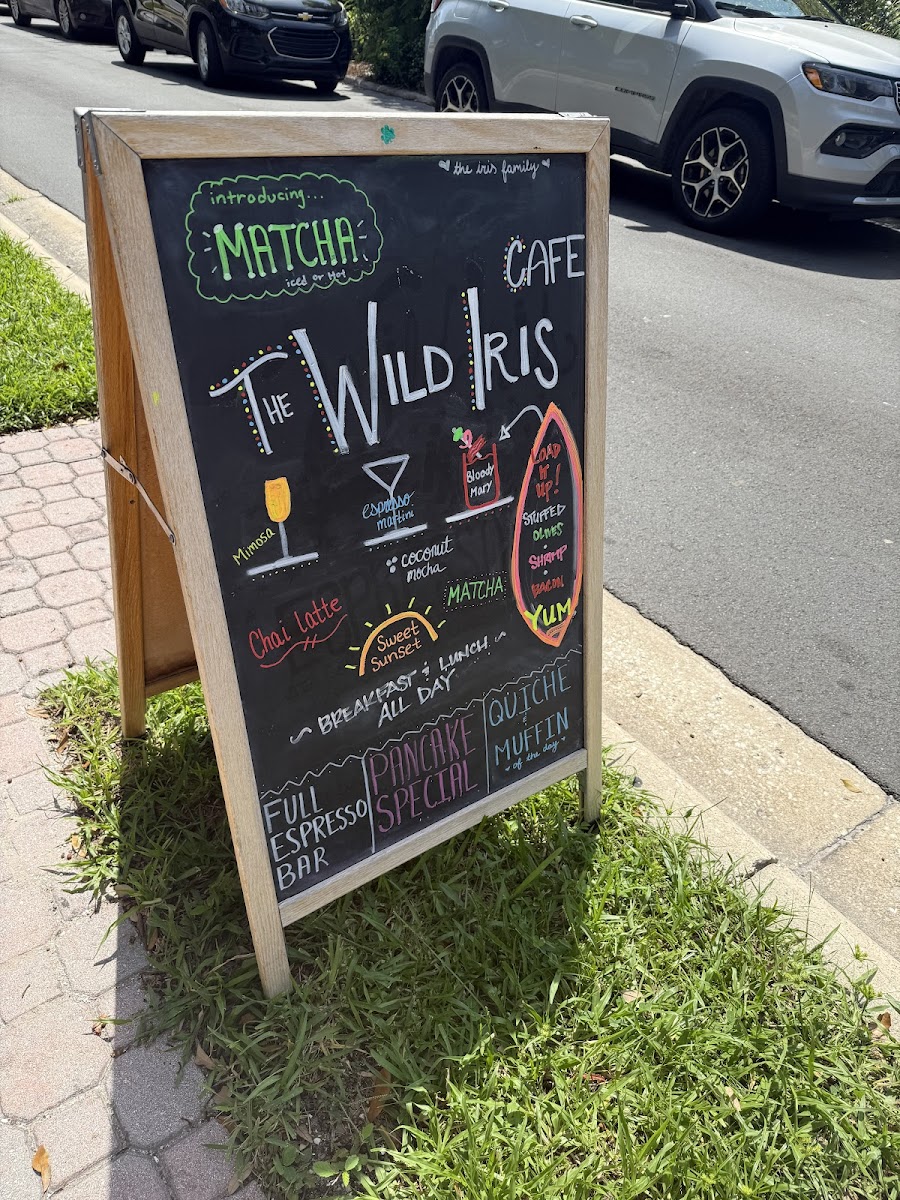 COMPASS
the iris family
introducing...
MATCHA
iced or hot
CAFE
THE WILD IRIS
Mimosa
espresso
martini
Bloody
Mary
LOAD
IT
UP!
STUFFED
OLIVES
SHRIMP
BACON
YUM
coconut
mocha
MATCHA
Chai Latte
Sweet
Sunset
~ BREAKFAST & LUNCH ~
ALL DAY
FULL
ESPRESSO
BAR
PANCAKE
SPECIAL
QUICHE
&
MUFFIN
of the day